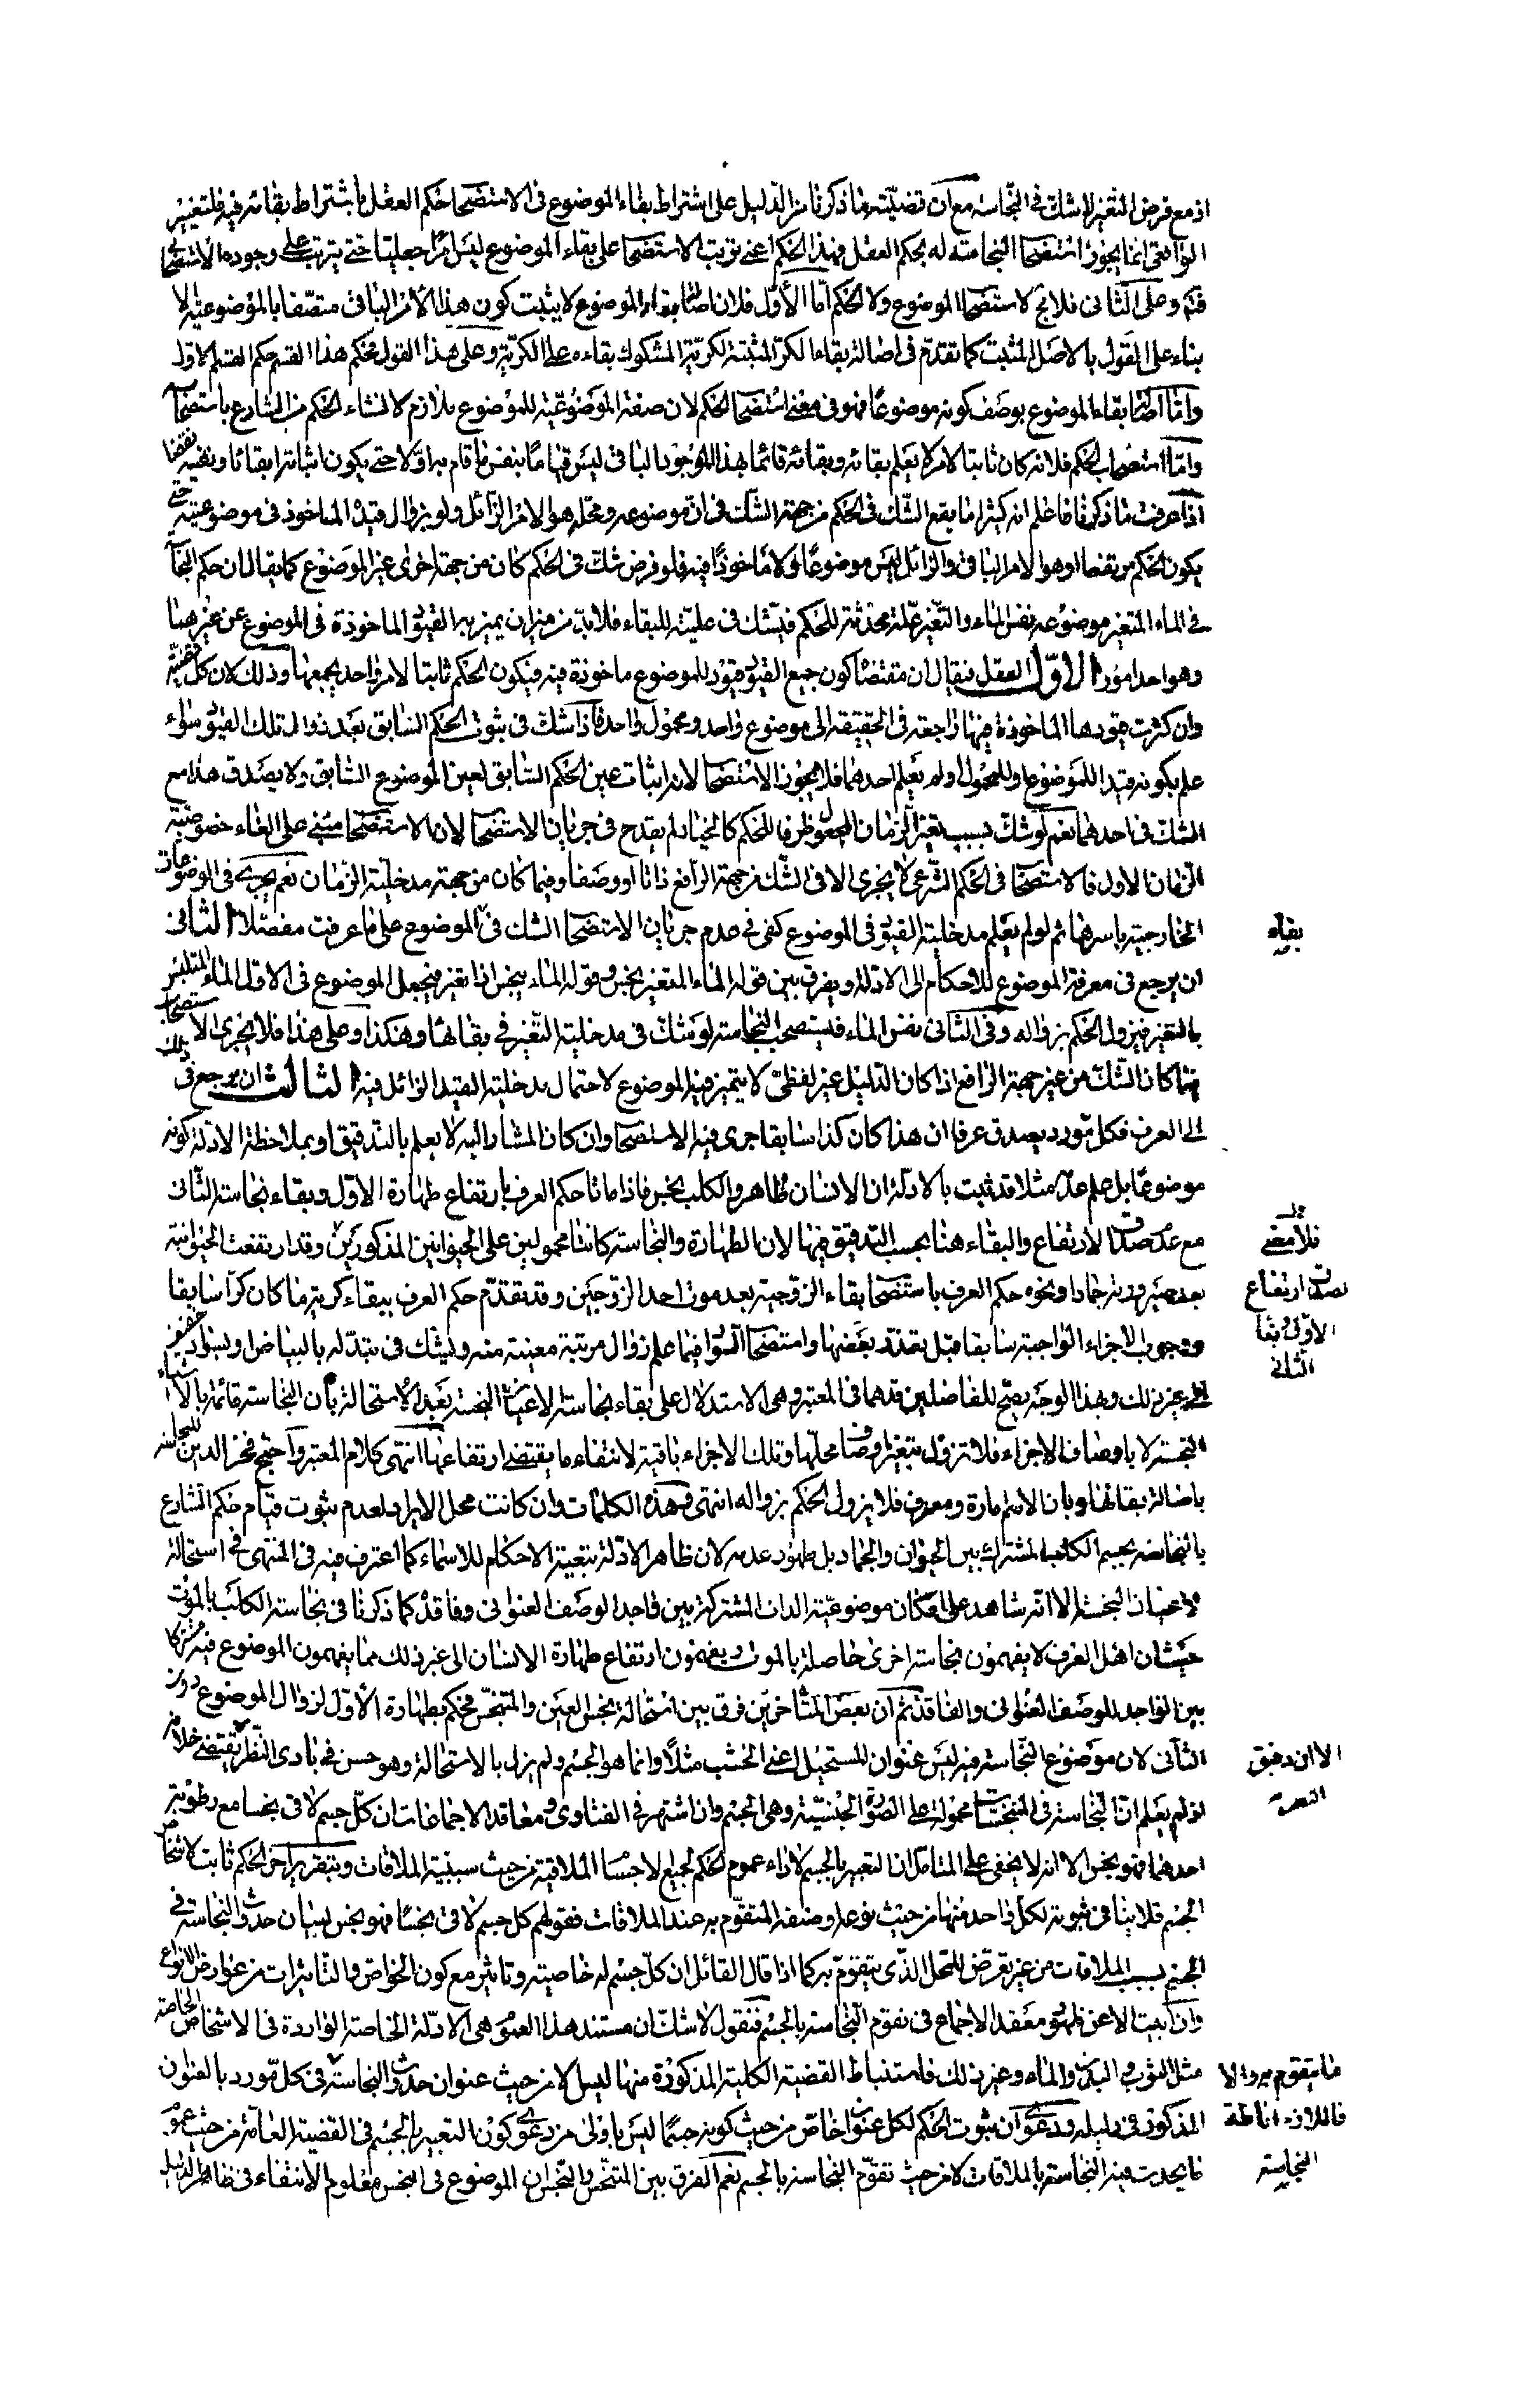 اذ مع فرض التغير لا شك في النجاسة مع ان قضيته ما ذكرنا من الدليل على اشتراط بقاء الموضوع في الاستصحاب حكم العقل باشتراط بقائه فيه فالتغير
الواقعي انما يجوز استصحاب النجاسة له بحكم العقل فهذا الحكم اعني ترتب الاستصحاب على بقاء الموضوع ليس امرا جعليا حتى يترتب على وجوده الاستصحابي
فتم وعلى الثاني فلا مجال لاستصحاب الموضوع ولا الحكم اما الأول فلان اصالة بقاء الموضوع لا يثبت كون هذا الأمر الباقي متصفا بالموضوعية الا
بناء على القول بالاصل المثبت كما تقدم في اصالة بقاء الكر المثبتة لكرية المشكوك بقاءه على الكرية وعلى هذا القول فحكم هذا القسم حكم القسم الاول
واما اصالة بقاء الموضوع بوصف كونه موضوعا فهو في معنى استصحاب الحكم لان صفة الموضوعية للموضوع ملازم لانشاء الحكم من الشارع باستصحابه
واما استصحاب الحكم فلانه كان ثابتا لامر لا يعلم بقائه وبقائه قائما بهذا الموجود الباقي ليس قياما بنفس ما قام به اولا حتى يكون اثباته ابقاءا ونفيه نقضا
اذا عرفت ما ذكرنا فاعلم انه كثيرا ما يقع الشك في الحكم من جهة الشك في ان موضوعه ومحله هو الامر الزائل ولو بزوال قيده الماخوذ في موضوعيته حتى
يكون الحكم مرتفعا او هو الامر الباقي والزائل ليس موضوعا ولا ماخوذا فيه فلو فرض شك في الحكم كان من جهة اخرى غير الموضوع كما يقال ان حكم النجاسة
في الماء المتغير موضوعه نفس الماء والتغير علة محدثة للحكم فيشك في عليته للبقاء فلا بد من ميزان يميز به القيود الماخوذة في الموضوع عن غيرها
وهو احد امور الأول العقل فيقال ان مقتضاه كون جميع القيود قيودا للموضوع ماخوذة فيه فيكون الحكم ثابتا لامر واحد يجمعها وذلك لان كل قضية
وان كثرت قيودها الماخوذة فيها راجعة في الحقيقة الى موضوع واحد ومحمول واحد فاذا شك في ثبوت الحكم السابق بعد زوال تلك القيود سواء
علم بكونه قيدا للموضوع او للمحمول او لم يعلم احدهما فلا يجوز الاستصحاب لانه اثبات عين الحكم السابق لعين الموضوع السابق ولا يصدق هذا مع
الشك في احدهما نعم لو شك بسبب تغير الزمان المجعول ظرفا للحكم كالخيار لم يقدح في جريان الاستصحاب لان الاستصحاب مبني على الغاء خصوصية
الزمان الاول فالاستصحاب في الحكم الشرعي لا يجري الا في الشك من جهة الرافع ذاتا او وصفا وفيما كان من جهة مدخلية الزمان نعم يجري في الموضوعات
الخارجية باسرها ثم لو لم يعلم مدخلية القيود في الموضوع كفى في عدم جريان الاستصحاب الشك في الموضوع على ما عرفت مفصلا الثاني
بقاء
ان يرجع في معرفة الموضوع للاحكام الى الادلة ويفرق بين قوله الماء المتغير نجس وقوله الماء ينجس اذا تغير فيجعل الموضوع في الاول الماء المتلبس
بالتغير فيزول الحكم بزواله وفي الثاني نفس الماء فيستصحب النجاسة لو شك في مدخلية التغير في بقائها وهكذا وعلى هذا فلا يجري الاستصحاب
فيما كان الشك من غير جهة الرافع اذا كان الدليل غير لفظي لا يتميز فيه الموضوع لاحتمال مدخلية القيد الزائل فيه الثالث ان يرجع في ذلك
الى العرف فكل مورد يصدق عرفا ان هذا كان كذا سابقا جرى فيه الاستصحاب وان كان المشار اليه لا يعلم بالتدقيق او بملاحظة الادلة كونه
موضوعا بل علم عدمه مثلا قد ثبت بالادلة ان الانسان طاهر والكلب نجس فاذا ماتا حكم العرف بارتفاع طهارة الاول وبقاء نجاسة الثاني
مع عدم صدق الارتفاع والبقاء هنا بحسب التدقيق فيها لان الطهارة والنجاسة كانتا محمولين على الحيوانين المذكورين وقد ارتفعت الحيوانية
فلا معنى
بعد صيرورته جمادا ونحوه حكم العرف باستصحاب بقاء الزوجية بعد موت احد الزوجين وقد تقدم حكم العرف ببقاء كرية ما كان كرا سابقا
لصدق ارتفاع
ووجوب الاجزاء الواجبة سابقا قبل تعذر بعضها واستصحاب السواد فيما علم زوال مرتبة معينة منه ويشك في تبدله بالبياض او بسواد خفيف
الاول وبقاء
الثاني
الى غير ذلك وبهذا الوجه يصح للفاضلين قدهما في المعتبر وهي الاستدلال على بقاء نجاسة الاعيان النجسة بعد الاستحالة بان النجاسة قائمة بالاشياء
النجسة لا باوصاف الاجزاء فلا تزول بتغير اوصاف محلها وتلك الاجزاء باقية لانتفاء ما يقتضي ارتفاعها انتهى كلام المعتبر واحتج فخر الدين للنجاسة
باصالة بقائها وبان الاسم امارة ومعرف فلا يزول الحكم بزواله انتهى وهذه الكلمات وان كانت محل الايراد لعدم ثبوت قيام حكم الشارع
بالنجاسة بجسم الكلب المشترك بين الحيوان والجماد بل ظهور عدمه لان ظاهر الادلة تبعية الاحكام للاسماء كما اعترف فيه في المنتهى في استحالة
الاعيان النجسة الا انه شاهد على امكان موضوعية الذات المشتركة بين واجد الوصف العنواني وفاقده كما ذكرنا في نجاسة الكلب بالموت
حيث ان اهل العرف لا يفهمون نجاسة اخرى حاصلة بالموت ويفهمون ارتفاع طهارة الانسان الى غير ذلك مما يفهمون الموضوع فيه مشتركا
بين الواجد للوصف العنواني والفاقد ثم ان بعض المتاخرين فرق بين استحالة نجس العين والمتنجس فحكم بطهارة الأول لزوال الموضوع دون
الثاني لان موضوع النجاسة فيه ليس عنوان المستحيل اعني الخشب مثلا وانما هو الجسم ولم يزل بالاستحالة وهو حسن في بادي النظر يقتضي خلافه
الا ان دقيق
اذ لم يعلم ان النجاسة في المتنجسات محمولة على الصورة الجنسية وهي الجسم وان اشتهر في الفتاوى ومعاقد الاجماعات ان كل جسم لاقى نجسا مع رطوبة
احدهما فهو نجس الا انه لا يخفى على المتامل ان التعبير بالجسم لاداء عموم الحكم لجميع الاجسام الملاقية من حيث سببية الملاقات وبتقرير اخر الحكم ثابت لاشخاص
الجسم فلا ينافي ثبوته لكل واحد منها من حيث نوعه او صنفه المتقوم به عند الملاقات فقولهم كل جسم لاقى نجسا فهو نجس لبيان حدوث النجاسة في
الجسم بسبب الملاقات من غير تعرض للمحل الذي يتقوم به كما اذا قال القائل ان كل جسم له خاصية وتاثير مع كون الخواص والتاثيرات من عوارض الانواع
وان ابيت الا عن ظهور معقد الاجماع في تقوم النجاسة بالجسم فنقول لا شك ان مستند هذا العموم هي الادلة الخاصة الواردة في الاشخاص الخاصة
مثل الثوب والبدن والماء وغير ذلك فاستنباط القضية الكلية المذكورة منها ليس الا من حيث عنوان حدوث النجاسة في كل مورد بالعنوان
ما يتقوم به والا
المذكور في دليله ودعوى ان ثبوت الحكم لكل عنوان خاص من حيث كونه جسما ليس باولى من دعوى كون التعبير بالجسم في القضية العامة من حيث عموم
فاللازم اناطة
ما يحدث فيه النجاسة بالملاقات لا من حيث تقوم النجاسة بالجسم نعم الفرق بين المتنجس والنجس ان الموضوع في النجس معلوم الانتفاء في ظاهر الدليل
النجاسة